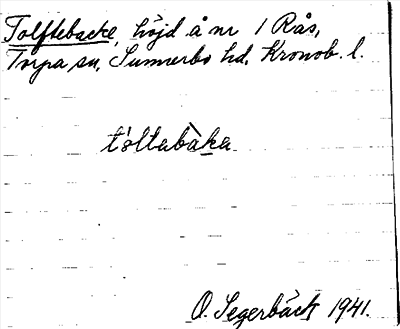 Tolftebacke, höjd å nr 1 Rås,
Torpa sn, Sunnerbo hd, Kronob. l.
tóltabàka
O. Segerbäck 1941.